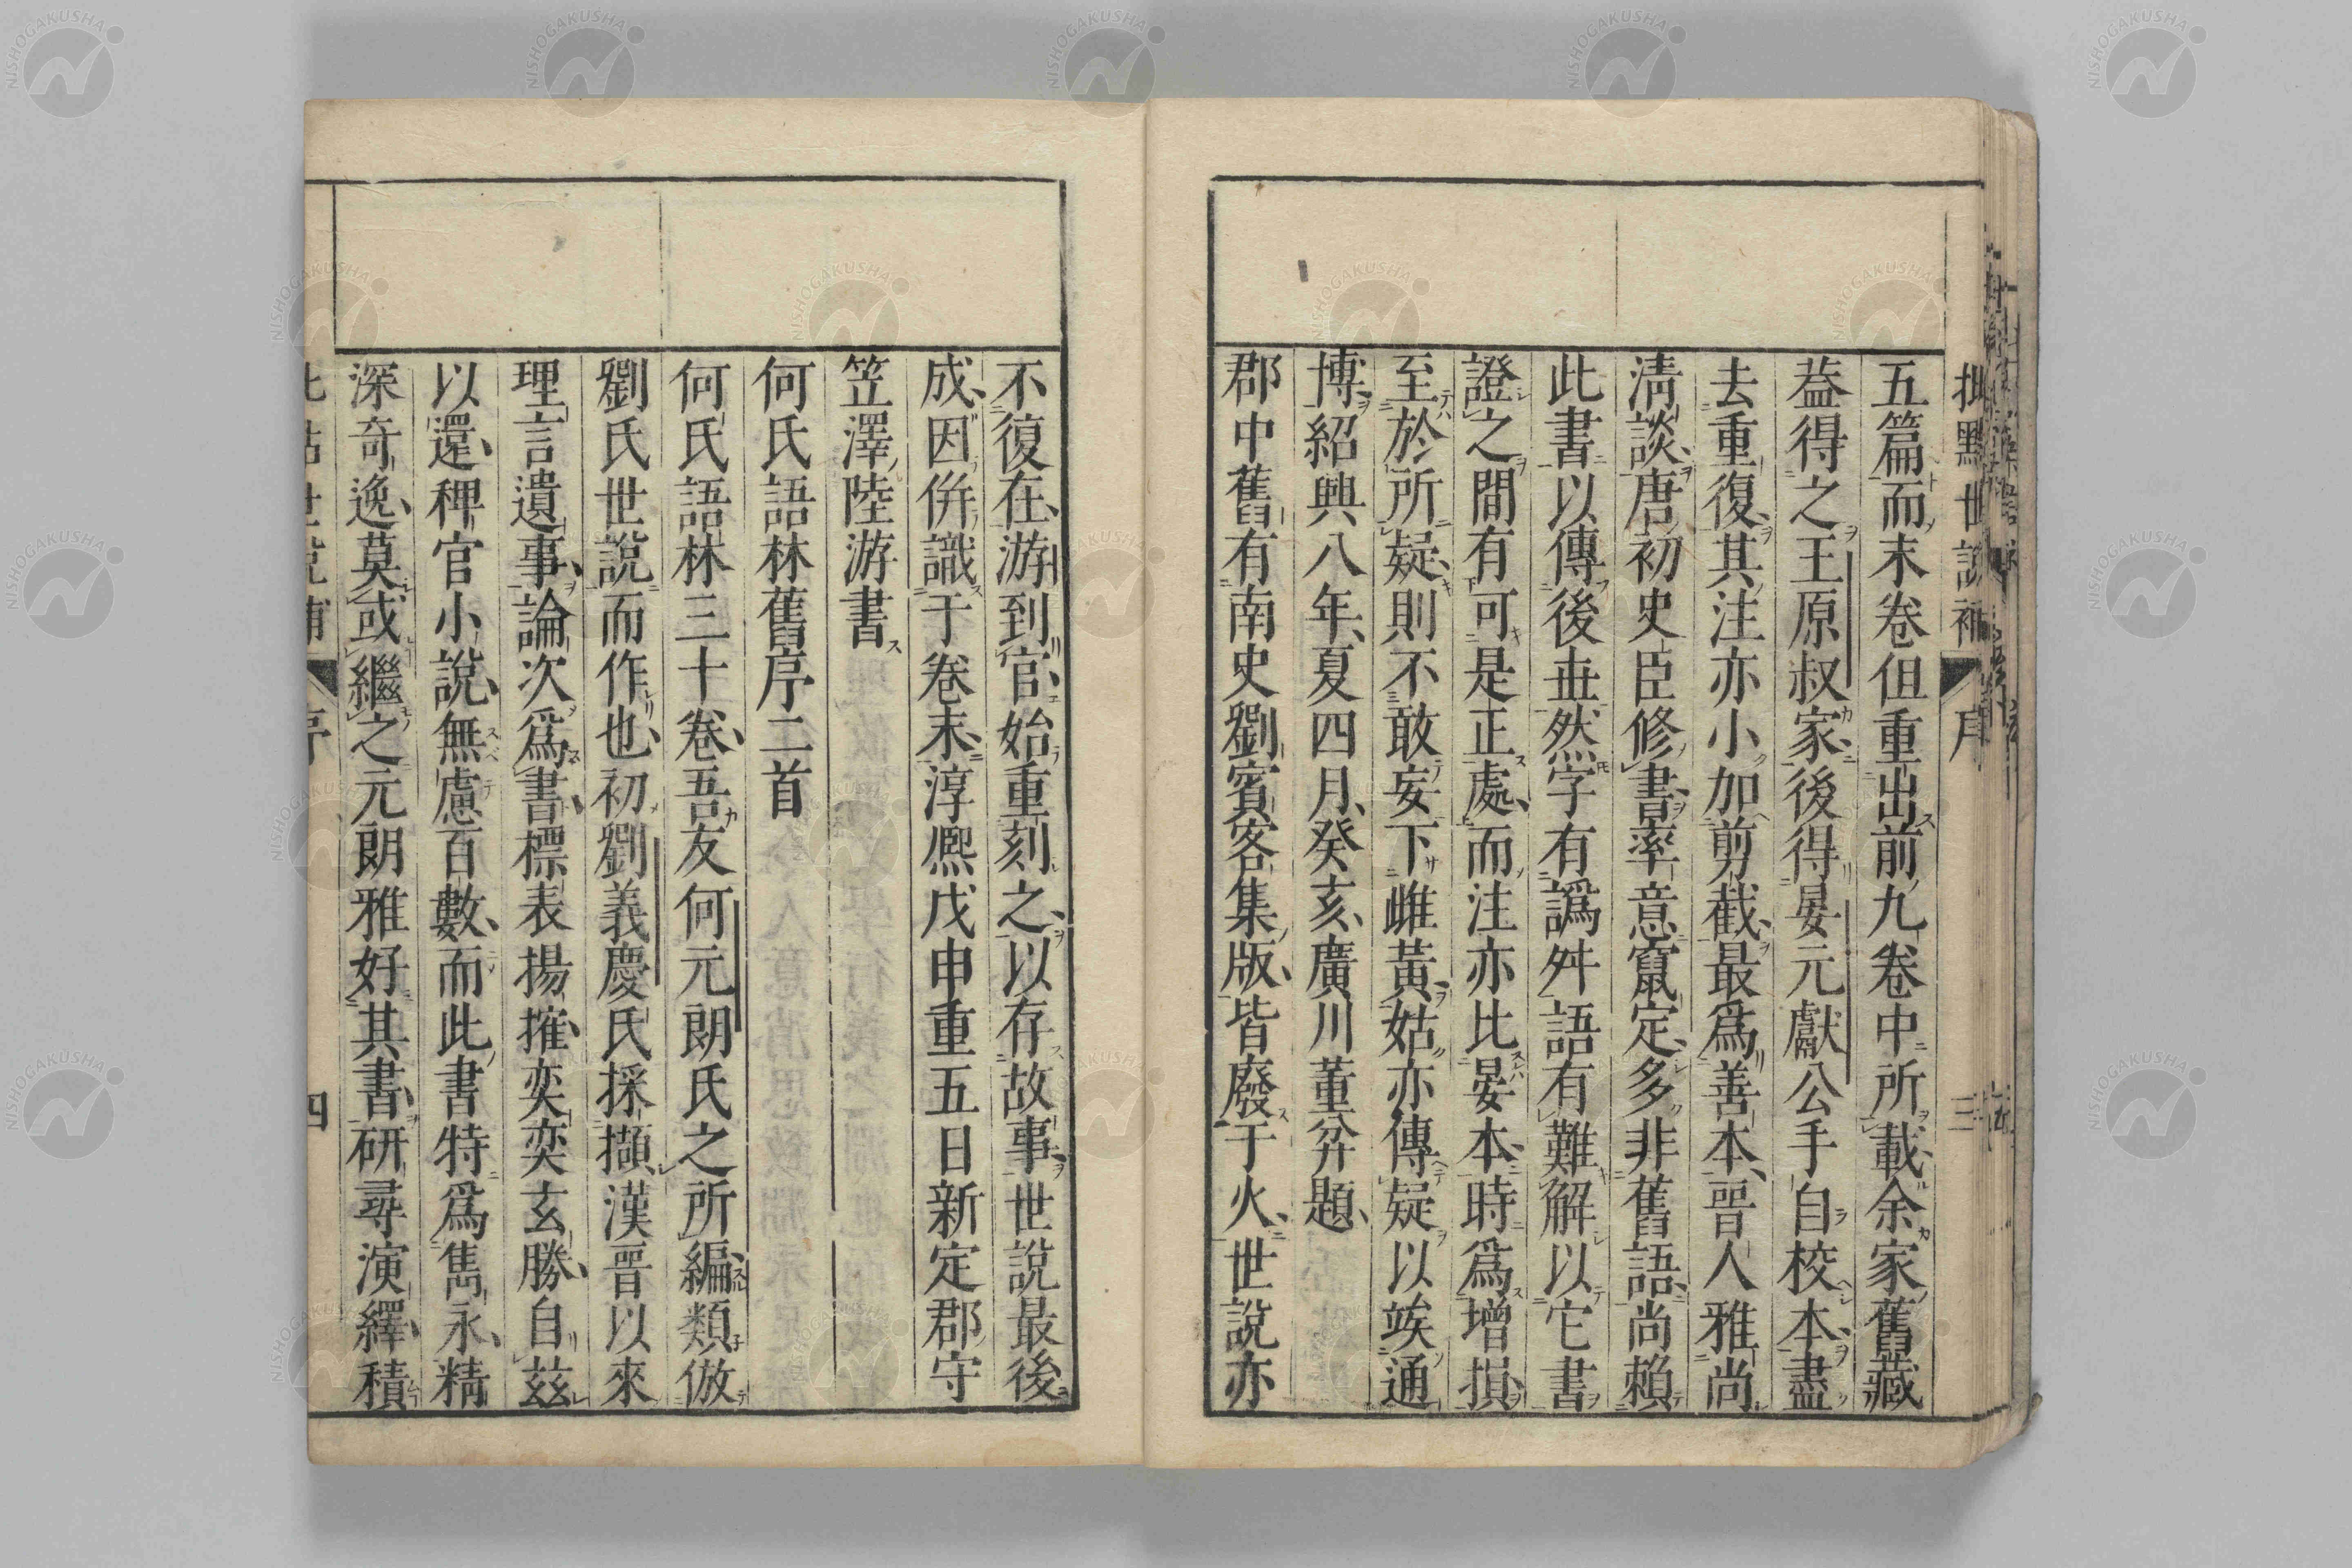 五篇而末卷但重出前九卷中所載余家舊藏
葢得之王原叔家後得晏元獻公手自校本盡
去重復其注亦小加剪截最爲善本晉人雅尚
清談唐初史臣修書率意竄定多非舊語尚賴
此書以傳後世然字有譌舛語有難解以它書
證之間有可是正處而注亦比晏本時爲增損
至於所疑則不敢妄下雌黃姑亦傳疑以竢通
博紹興八年夏四月癸亥廣川董弅題
郡中舊有南史劉賓客集版皆廢于火世說亦
不復在游到官始重刻之以存故事世說最後
成因併識于卷末淳熈戊申重五日新定郡守
笠澤陸游書
何氏語林舊序二首
何氏語林三十卷吾友何元朗氏之所編類倣
劉氏世說而作也初劉義慶氏採擷漢晉以來
理言遺事論次爲書標表揚搉奕奕玄勝自茲
以還稗官小說無慮百數而此書特爲雋永精
深奇逸莫或繼之元朗雅好其書研尋演繹積